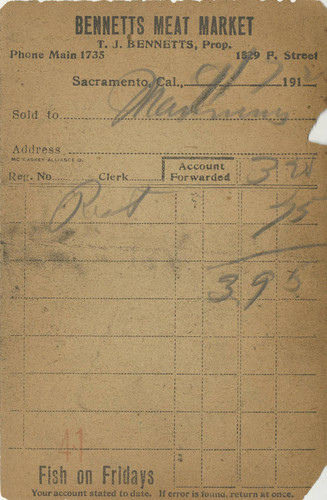 BENNETTS MEAT MARKET
T. J. BENNETTS, Prop.
Phone Main 1735 1829 F. Street
Sacramento, Cal., 191
Sold to
Address
Reg. No. Clerk Account Forwarded 3 20
75
3 95
41
Fish on Fridays
Your account stated to date. If error is found, return at once.